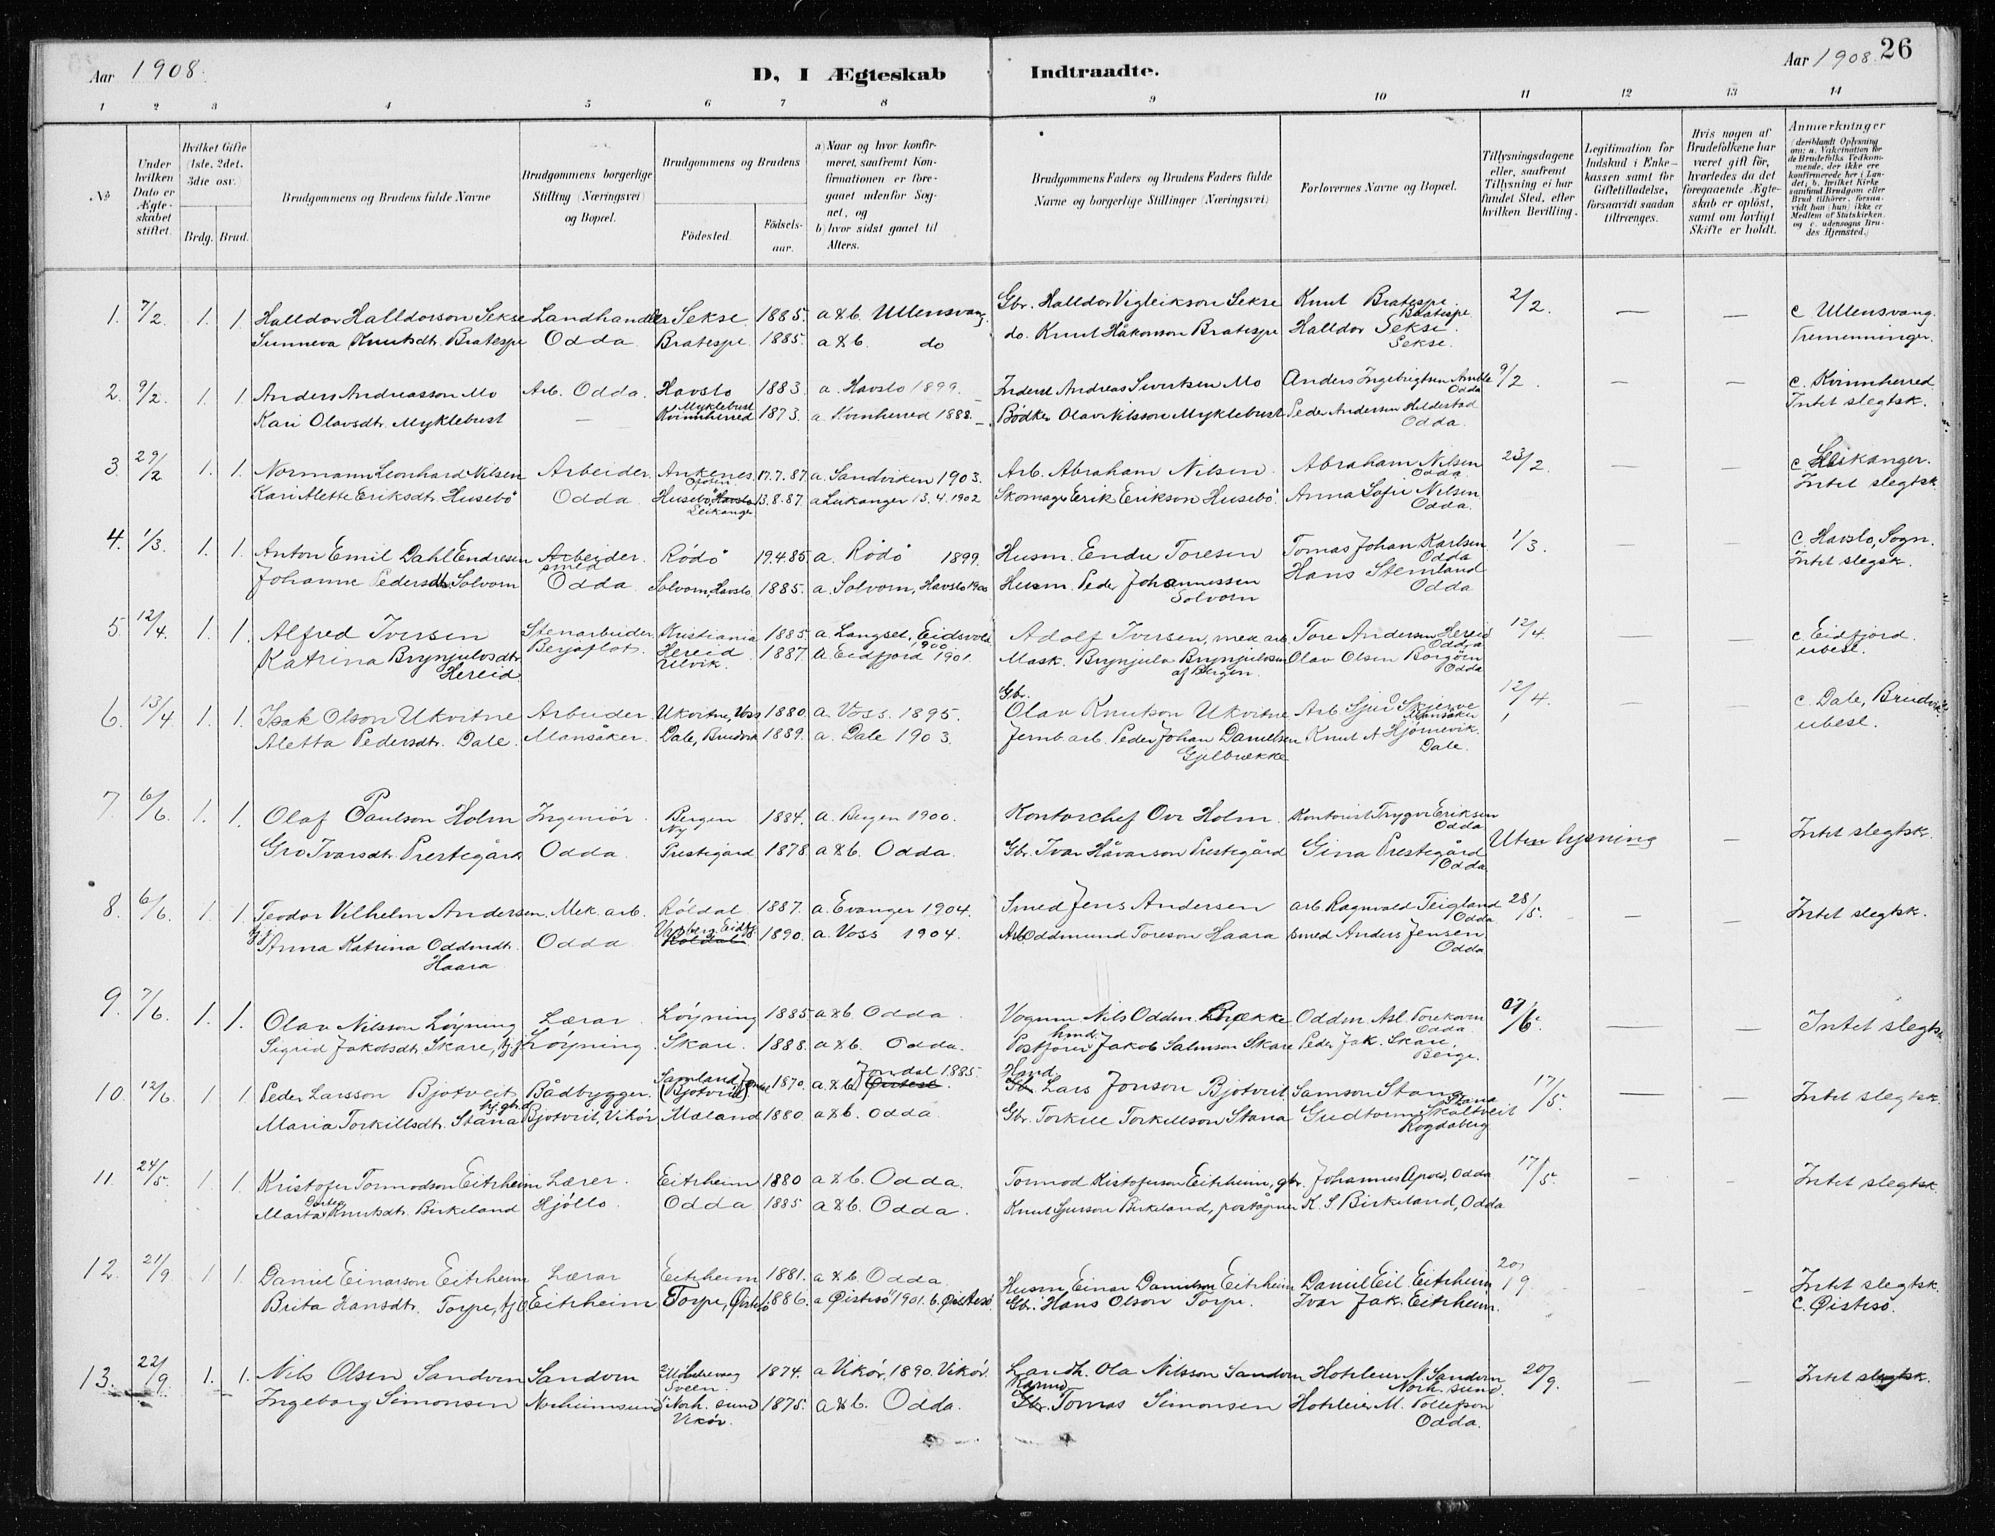 Aar 1908.
D, I Ægteskab Indtraadte.
Aar 1908.
26
1 2 3 4 5 6 7 8 9 10 11 12 13 14
No.
Under hvilken Dato er Ægteskabet stiftet.
Hvilket Gifte (1ste, 2det, 3die osv.)
Brdg. Brud.
Brudgommens og Brudens fulde Navne
Brudgommens borgerlige Stilling (Næringsvei) og Bopæl.
Brudgommens og Brudens
Fødested. Fødselsaar.
a) Naar og hvor konfirmeret, saafremt Konfirmationen er foregaaet udenfor Sognet, og
b) hvor sidst gaaet til Alters.
Brudgommens Faders og Brudens Faders fulde Navne og borgerlige Stillinger (Næringsvei)
Forlovernes Navne og Bopæl.
Tillysningsdagene eller, saafremt Tillysning ei har fundet Sted, efter hvilken Bevilling.
Legitimation for Indskud i Enkekassen samt for Giftetilladelse, forsaavidt saadan tiltrænges.
Hvis nogen af Brudefolkene har været gift før, hvorledes da det foregaaende Ægteskab er opløst, samt om lovligt Skifte er holdt.
Anmærkninger (deriblandt Oplysning om: a. Vakcination for de Brudefolks Vedkommende, der ikke ere konfirmerede her i Landet; b. hvilket Kirkesamfund Brudgom eller Brud tilhører, forsaavidt han (hun) ikke er Medlem af Statskirken, og c. udensogns Brudes Hjemsted.)
1. 7/2 1. 1. Halldor Halldorson Sekse Landhandler Sekse 1885. a&b. Ullensvang. Gbr. Halldor Vigleikson Sekse Knut Bratespe. Bratespe 2/2 — — c Ullensvang.
Sunneva Knutsdt. Bratespe Odda Bratespe 1885. a&b. do do. Knut Håkonson Bratespe Halldor Sekse. Sekse. Tremenninger.
2. 9/2 1. 1 Anders Andreasson Mo Arb. Odda. Havslo 1883 a. Havslo 1899. Inderst Andreas Sivertsen Mo Anders Ingebrigtsen Amble Odda 9/2 — — c. Kvinnherred
Kari Olavsdt. Myklebust — Myklebust Kvinnherred 1873. a. Kvinherred 1888. Bødker Olav Nilsson Myklebust Peder Andersen Hildestad Odda. Intet slegtsk.
3 29/2 1. 1. Normann Leonhard Nilsen Arbeider Ankenes Ofoten 17.7.87 a. Sandviken 1903. Arb. Abraham Nilsen Abraham Nilsen Odda 23/2 — — c Leikanger.
Kari Alette Eriksdt. Husebö Odda. Husebö, Havslo Leikanger 13.8.87 a Leikanger 13.4.1902 Skomager Erik Erikson Husebö. Anna Sofie Nilsen Odda. Intet slegtsk.
4. 1/3. 1. 1. Anton Emil Dahl Endresen Arbeider. smed Rödö 19.4.85 a. Rödö 1899. Husm. Endre Toresen Tomas Johan Karlsen Odda 1/3. — — c. Havslo, Sogn.
Johanne Pedersdt. Solvorn Odda. Solvorn, Havslo. 1885. a. Solvorn, Havslo 1900 Husm. Peder Johannessen Solvorn Hans Stemland Odda Intet slegsk.
5. 12/4. 1. 1. Alfred Iversen Stenarbeider. Kristiania 1885. a Langset, Eidsvold 1900. Adolf Iversen, mek arb. Tore Andersen Hereid Odda 12/4. — — c. Eidfjord.
Katrina Brynjulvsdtr. Hereid Berjaflot. Hereid Ulvik. 1887. a. Eidfjord 1901. Mask. Brynjulv Brynjulvsen af Bergen. Olav Olsen Borgöen Odda ubesl.
6. 13/4. 1. 1. Isak Olson Ukvitne Arbeider Ukvitne, Voss 1880 a. Voss. 1895. Gbr. Olav Knutson Ukvitne Arb. Sjur Skjerve Mansåker 12/4. — — c. Dale, Brudvik
Aletta Pedersdt. Dale. Mansåker. Dale, Bruvik 1889. a. Dale 1903. Jernb arb. Peder Johan Danielsen Gjelbrække Knut A Hjörnevik. Dale. ubesl.
7. 6/6. 1. 1. Olaf Paulson Holm Ingeniör. Bergen 1884. a. Bergen 1900. Kontorchef Ove Holm. Kontorist Trygve Eriksen Odda Uten lysning — Intet slegtsk.
Gro Ivarsdt. Prestegård Odda. Ny Prestegård 1878 a&b. Odda. Gbr. Ivar Håvarson Prestegård Gina Prestegård Odda
8. 6/6. 1. 1. Teodor Vilhelm Andersen. Mek. arb. Röldal 1887. a. Evanger 1904. Smed Jens Andersen arb. Ragnvald Teigland Odda 28/5. — — Intet slegtsk.
Anna Katrina Oddmdt. Haara Odda Röldal 1890. a. Voss 1904. Arb Oddmund Toreson Haara smed Anders Jensen. Odda
9. 7/6. 1. 1. Olav Nilsson Löyning Lærar. Löyning 1885 a&b Odda. Vognm Nils Oddm. Brække Oddm. Asl. Odda. /6. — — Intet slegtsk
Sigrid Jakobsdt. Skare, Löyning. Skare. 1888. a&b. Odda. Postförer hmd. Jakob Salmson Skare Peder Jak. Skare, Berge.
10. 12/6 1. 1. Peder Larsson Bjotveit Bådbygger. Samland (Bjotveit) 1870. a&b Jondal 1885. Östesö. Hmd Gbr. Lars Jonson Bjotveit, Samson Stana Stana 17/5. — — Intet slegtsk.
Maria Torkillsdt. Stana Bjotveit, Vikör Mæland 1880 a&b. Odda. Gbr. Torkill Torkillson Stana Gudtorm Skoltveit Rogdaberg
11. 24/5. 1. 1. Kristofer Tormodson Eitrheim Lærer. Eitrheim 1880 a&b. Odda. Tormod Kistoferson Eitrheim, gbr. Johannes Apold, Odda 17/5. — — Intet slegtsk.
Marta Dortea Knutsdt. Birkeland Hjöllo Odda 1885 a&b. Odda. Knut Sjurson Birkeland, poståpner K. S. Birkeland, Odda
12. 21/9. 1 1. Daniel Einarson Eitrheim Lærar Eitrheim 1881. a&b. Odda. Husm Einar Danielson Eitrheim Daniel Eil Eitrheim 20/9 — — Intet slegtsk.
Brita Hansdt. Torpe, Eitrheim Torpe, Östesö 1886. a Östesö 1901. b. Östesö. Gbr. Hans Olson Torpe. Ivar Jak. Eitrheim. c. Östesö.
13. 22/9. 1. 1. Nils Olsen Sandven Sandven Sveen. 1874. a Vikör, 1890. Vikör. Landh. Ola Nilsson Sandven Hoteleier N. Sandven Norh. sund 20/9. — — Intet slegtsk.
Ingeborg Simonsen Norheimsund Norh. sund Vikör. 1875. a&b. Odda. Gbr. Tomas Simonsen Hoteleier M. Tollefson Odda.